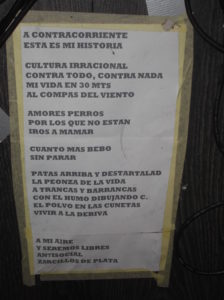 A CONTRACORRIENTE
ESTA ES MI HISTORIA
CULTURA IRRACIONAL
CONTRA TODO, CONTRA NADA
MI VIDA EN 30 MTS
AL COMPAS DEL VIENTO
AMORES PERROS
POR LOS QUE NO ESTAN
IROS A MAMAR
CUANTO MAS BEBO
SIN PARAR
PATAS ARRIBA Y DESTARTALAD
LA PEONZA DE LA VIDA
A TRANCAS Y BARBANCAS
CON EL HUMO DIBUJANDO C.
EL POLVO EN LAS CUNETAS
VIVIR A LA DERIVA
A MI AIRE
Y SEREMOS LIBRES
ANTISOCIAL
ZARCILLOS DE PLATA